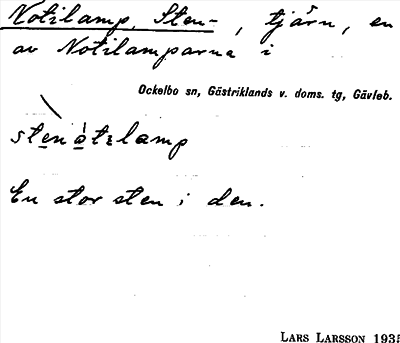 Notilamp, Sten-, tjärn, en
av Notilamparna i
Ockelbo sn, Gästriklands v. doms. tg, Gävleb.
stènátɩlamp
En stor sten i den.
LARS LARSSON 1935